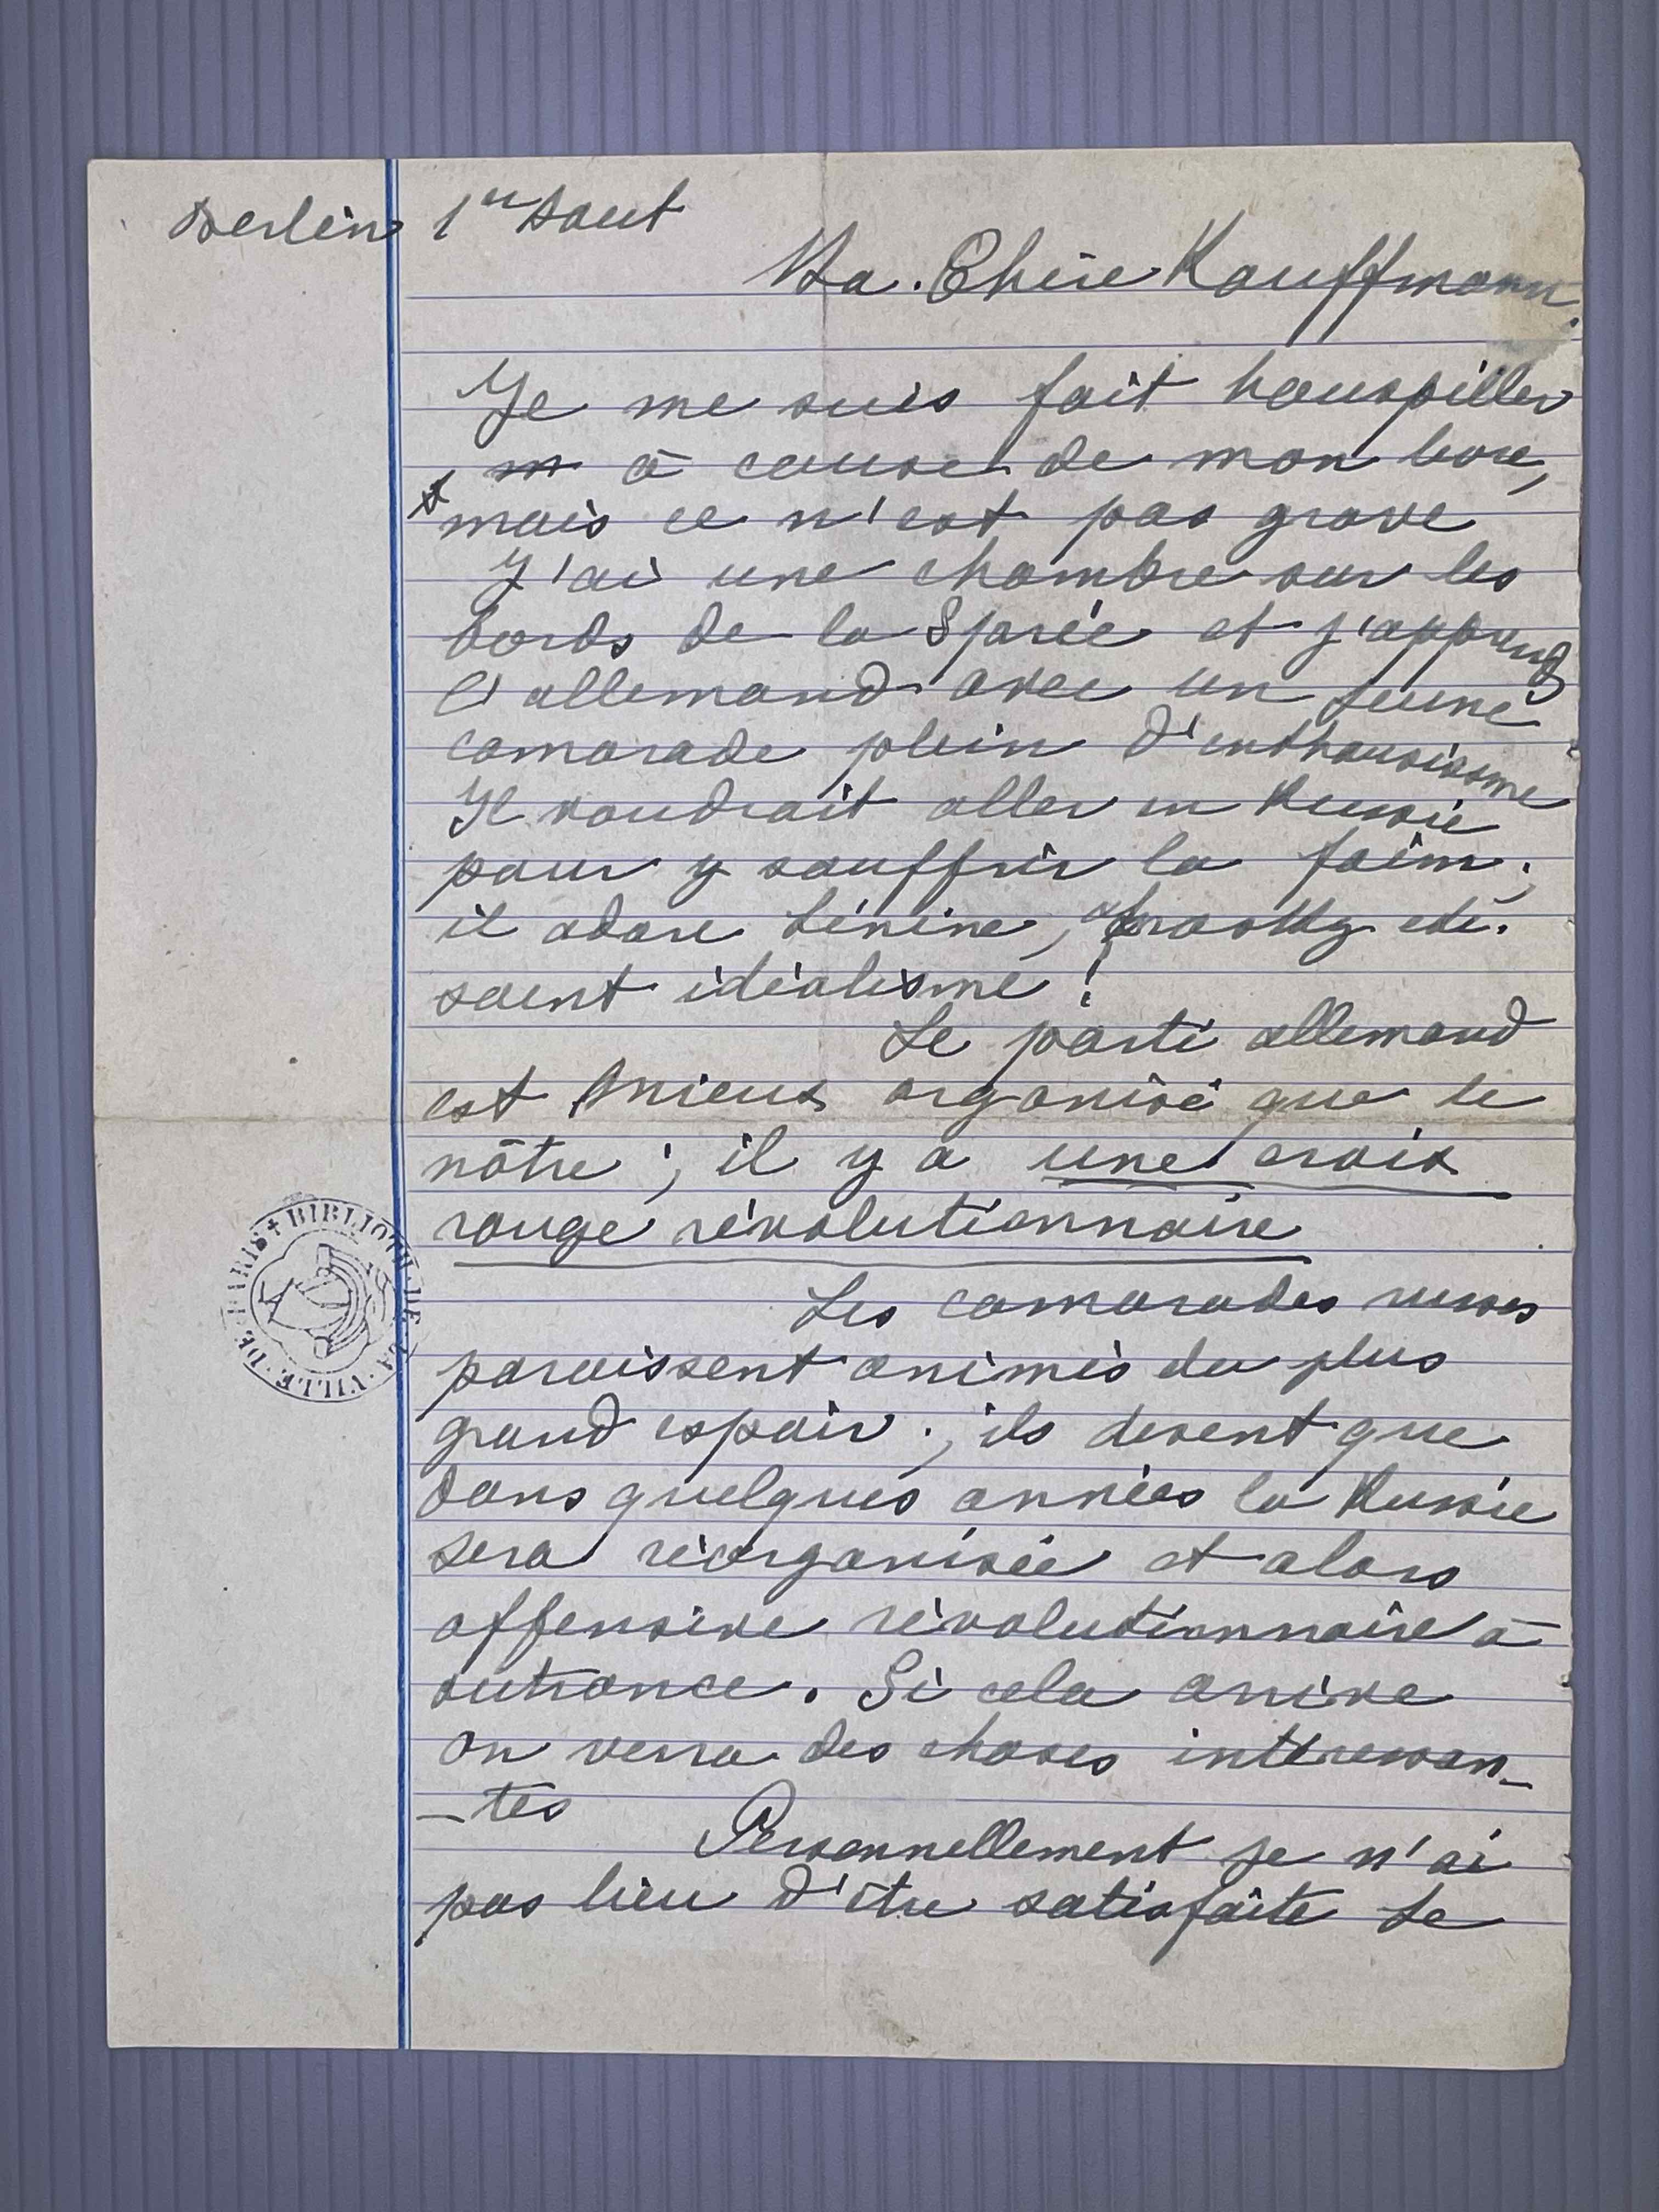 Berlin 1er Aout
Ma Chère Kauffmann.
Je me suis fait houspiller
m à cause de mon
mais ce n'est pas grave
J'ai une chambre sur les
bords de la Sprée et j'apprends
l'allemand avec un jeune
camarade plein d'enthousiasme
Il voudrait aller en Russie
pour y souffrir la faim ;
il adore Lénine, Trostky etc.
saint idéalisme !
Le parti allemand
est mieux organisé que le
nôtre ; il y a une croix
rouge révolutionnaire
Les camarades russes
paraissent animés du plus
grand espoir ; ils disent que
dans quelques années la Russie
sera réorganisée et alors
offensive révolutionnaire à
outrance. Si cela arrive
on verra des choses intéressan-
-tes
Personnellement je n'ai
pas lieu d'être satisfaite Le
BIBLIOTH. DE LA VILLE DE PARIS